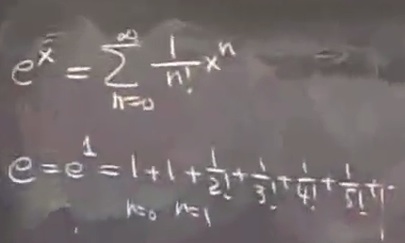 e^x = ∑_{n=0}^{∞} 1/n! x^n
e = e^1 = 1 + 1 + 1/2! + 1/3! + 1/4! + 1/5! + .
n=0 n=1